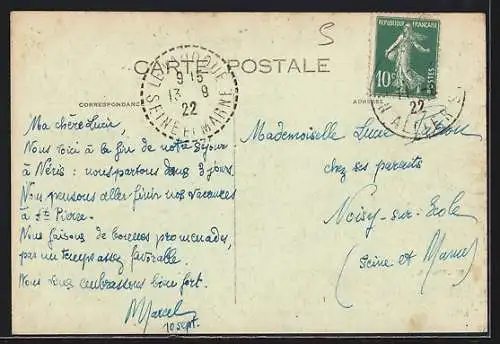 5
CARTE POSTALE
RÉPUBLIQUE FRANÇAISE
10c
POSTES
9 15
13 9
22
SEINE ET MARNE
22
CORRESPONDANCE
ADRESSE
Ma chère Lucie,
Nous voici à la fin de notre séjour
à Néris : nous partons dans 3 jours.
Nous pensons aller finir nos vacances
à St Pierre.
Nous faisons de bonnes promenades,
par un temps assez favorable.
Nous vous embrassons bien fort.
Marcel
10 sept.
Mademoiselle Lucie
chez ses parents
Noisy-sur-Ecole
(Seine et Marne)